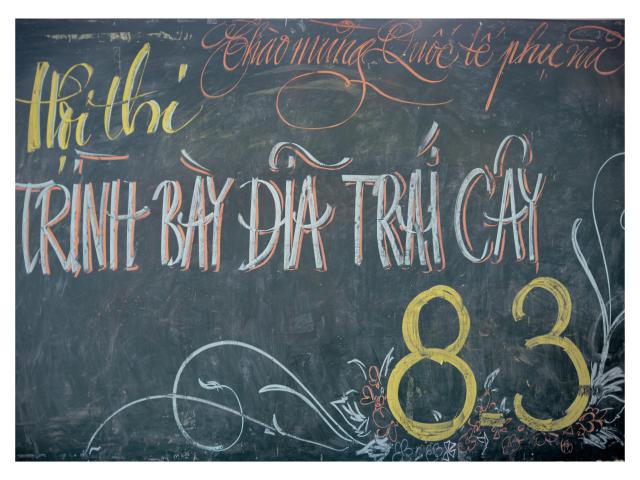 Chào mừng Quốc tế phụ nữ
Hội thi
TRÌNH BÀY DĨA TRÁI CÂY
8-3